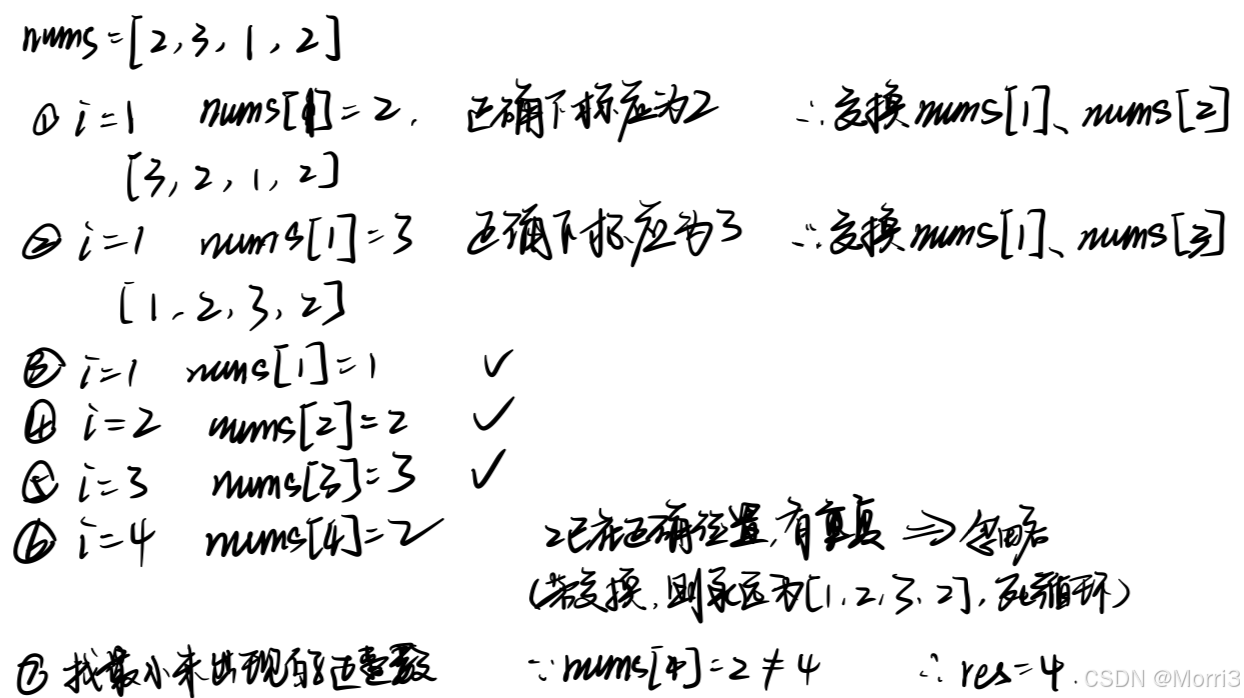 nums=[2,3,1,2]
① i=1 nums[1]=2. 正确下标应为2 ∴交换nums[1]、nums[2]
[3,2,1,2]
② i=1 nums[1]=3 正确下标应为3 ∴交换nums[1]、nums[3]
[1,2,3,2]
③ i=1 nums[1]=1 ✓
④ i=2 nums[2]=2 ✓
⑤ i=3 nums[3]=3 ✓
⑥ i=4 nums[4]=2✓ 2已在正确位置,有重复 ⇒ 忽略
(若交换,则永远为[1,2,3,2],死循环)
⑦ 找最小未出现的正整数 ∵nums[4]=2≠4 ∴res=4.
CSDN @Morri3